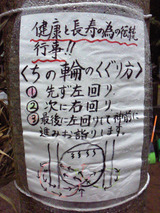 健康と長寿の為の伝統
行事!!
くちの輪のくぐり方
①先ず左回り
②次に右回り
③最後に左回りして神前に
進みお詣ります。